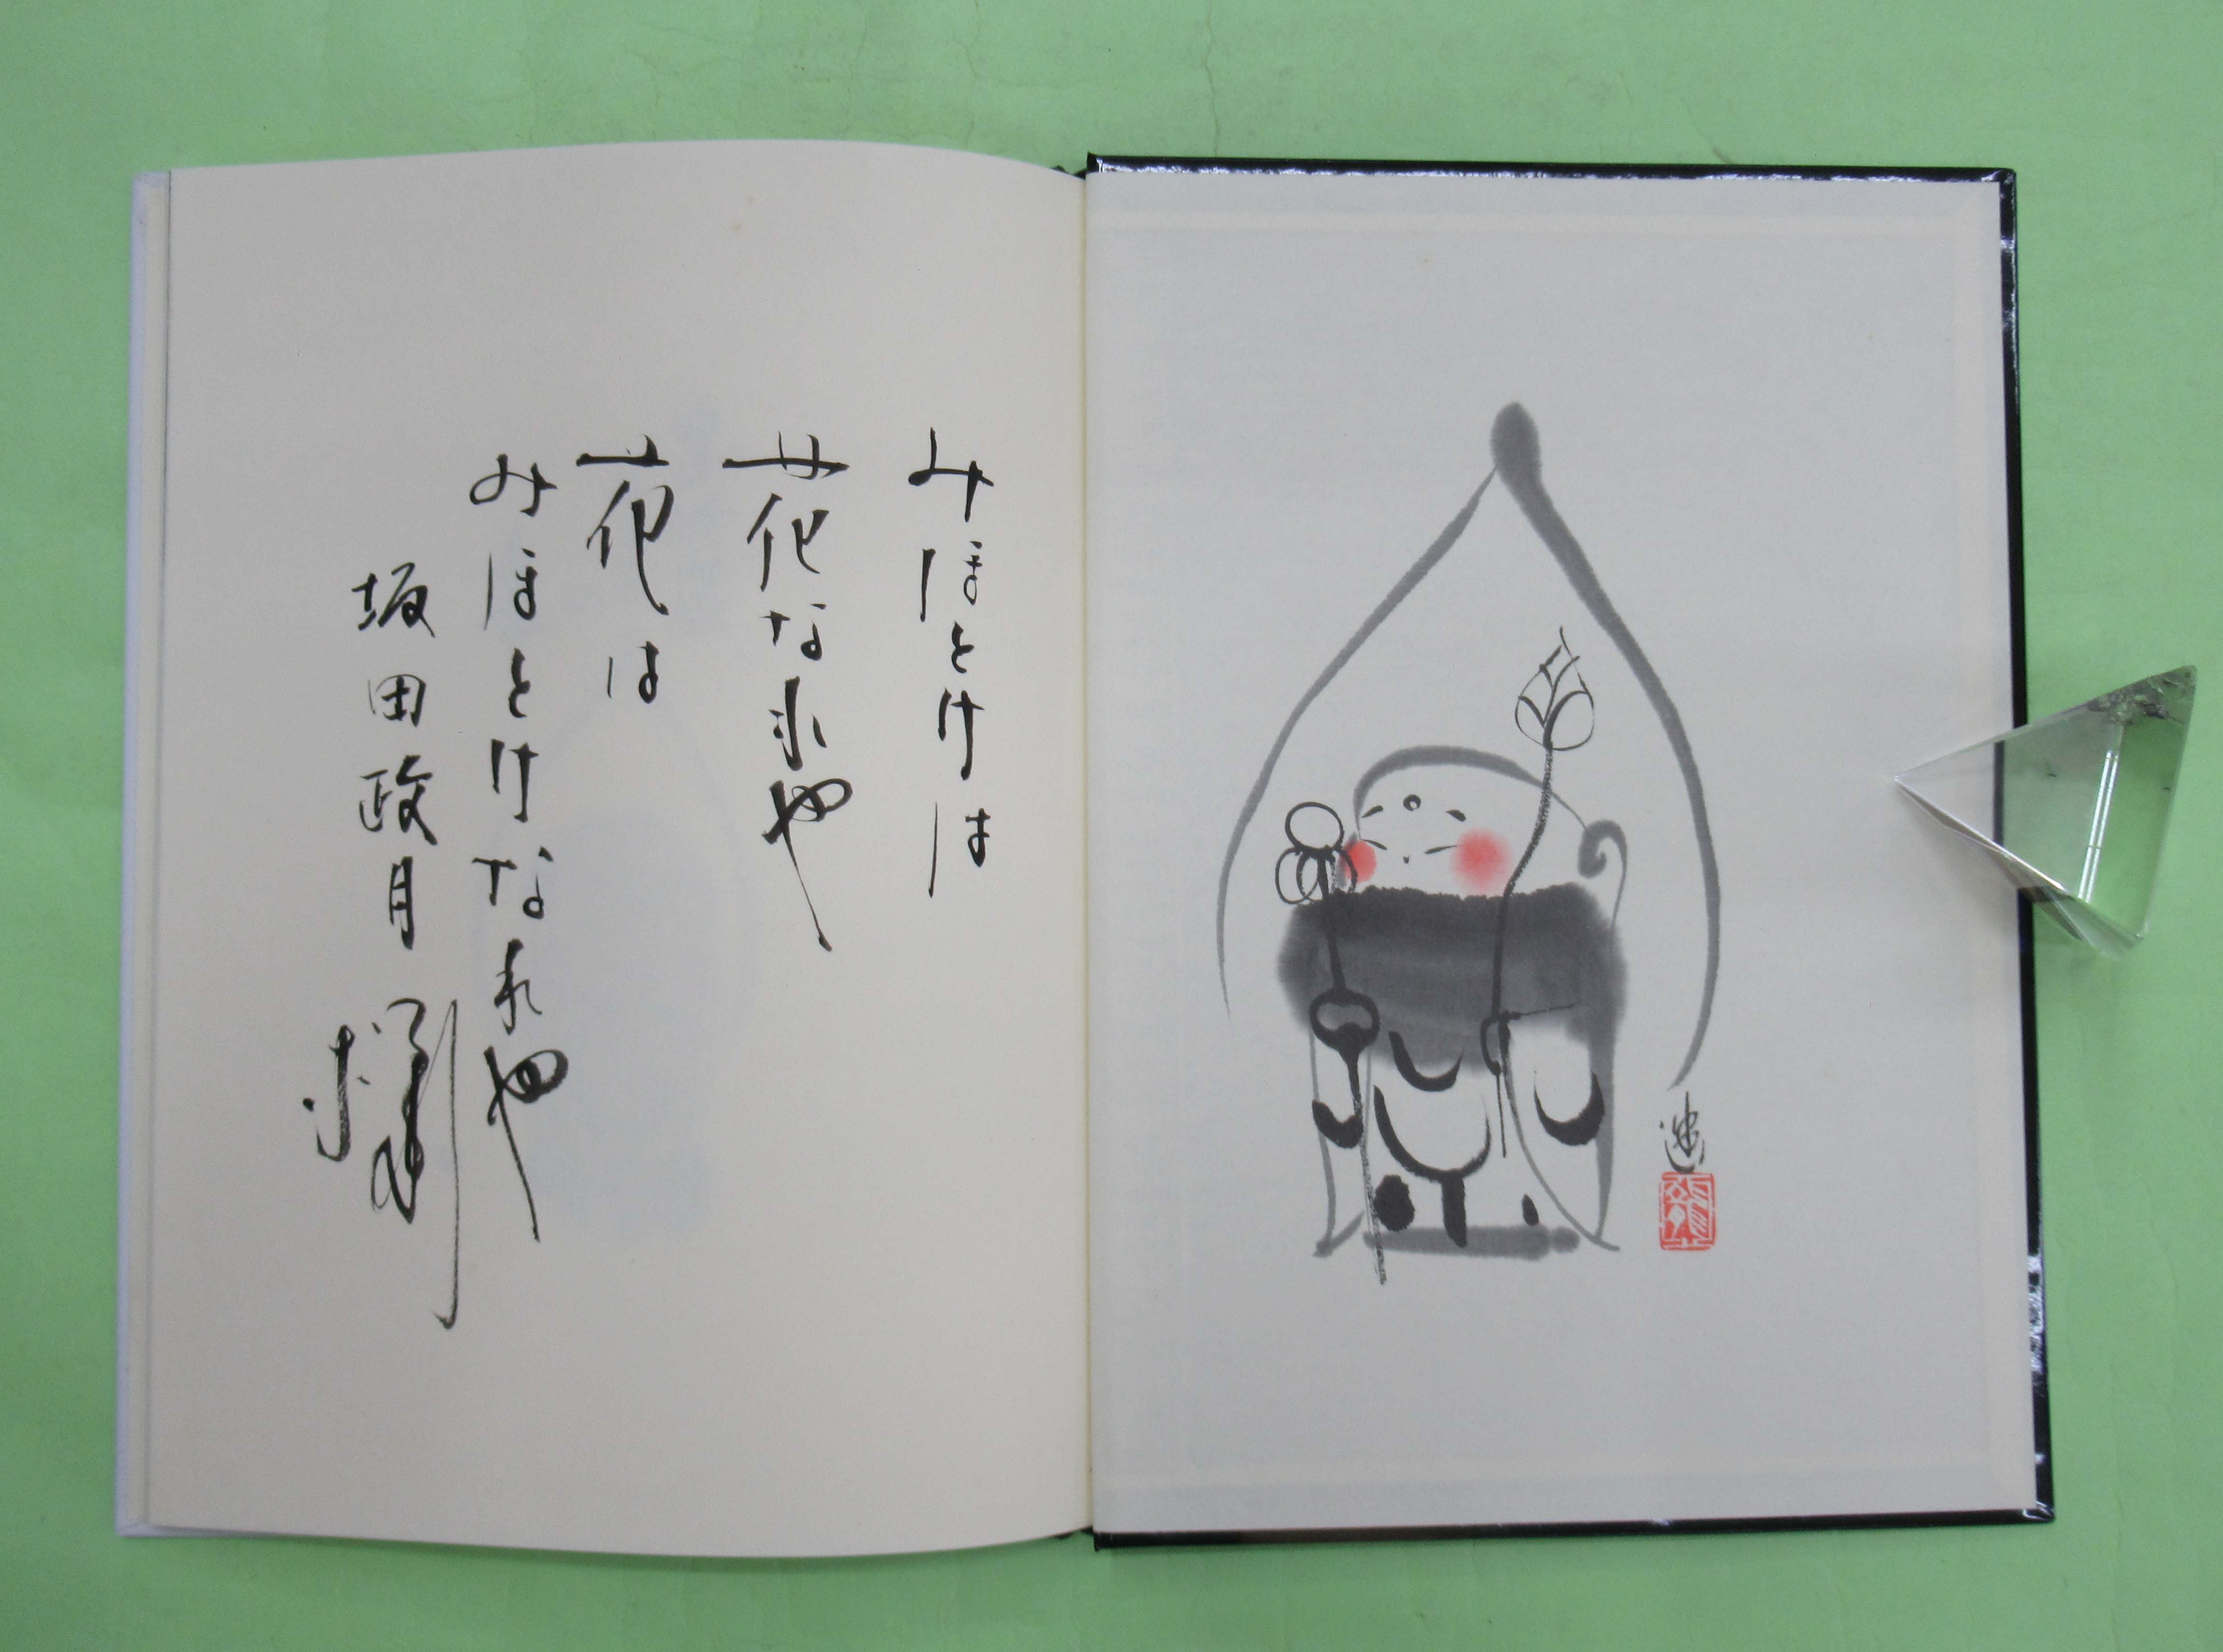 みほとけは
花なれや
花は
みほとけなれや
坂田政月